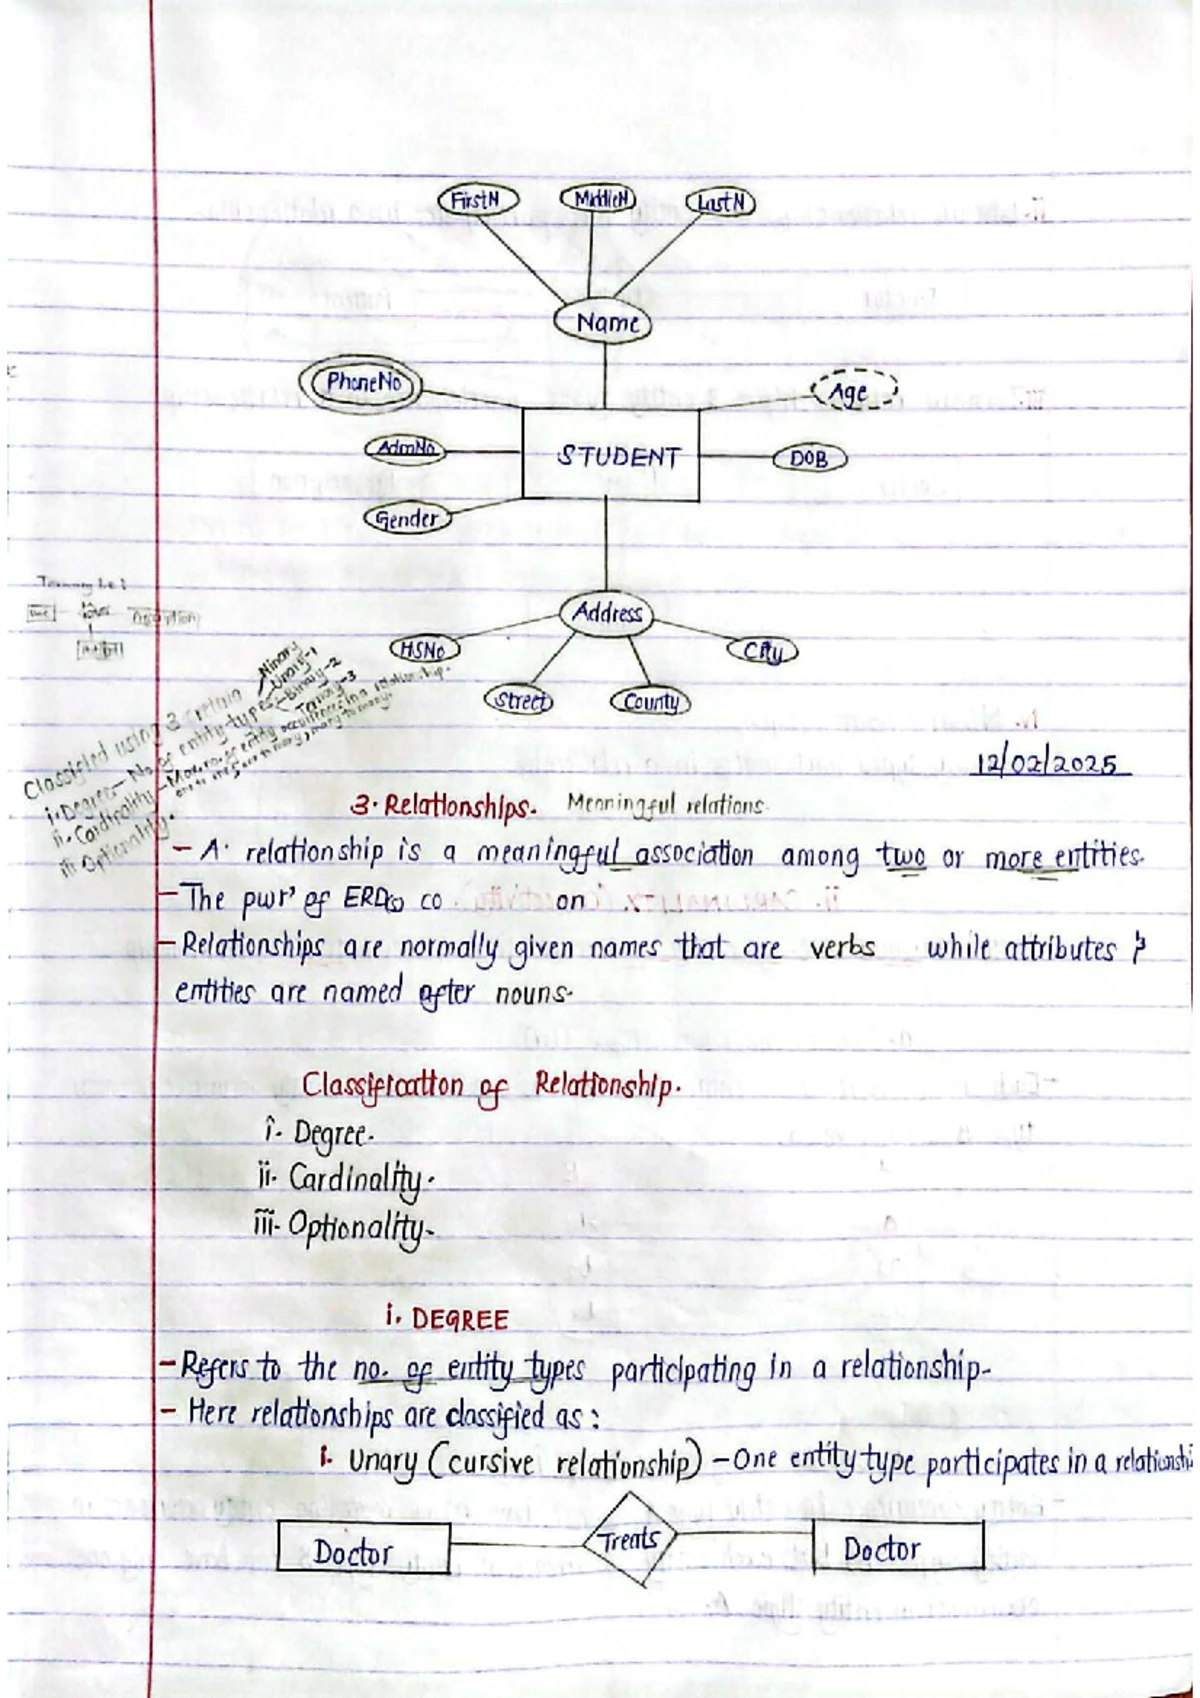 FirstN MiddleN LastN
Name
PhoneNo Age
AdmNo STUDENT DOB
Gender
Address
HSNo City
Street County
Classified using 3 criteria
i. Degree – No. of entity types
Unary-1
Binary-2
Ternary-3
ii. Cardinality – Max no. of entity occurrences in a relationship.
iii. Optionality.
12/02/2025
3. Relationships. Meaningful relations.
- A relationship is a meaningful association among two or more entities.
- The pwr' of ERD(s) co on
- Relationships are normally given names that are verbs while attributes &
entities are named after nouns.
Classification of Relationship.
i. Degree.
ii. Cardinality.
iii. Optionality.
i. DEGREE
- Refers to the no. of entity types participating in a relationship.
- Here relationships are classified as:
i. Unary (cursive relationship) - One entity type participates in a relationshi
Doctor Treats Doctor